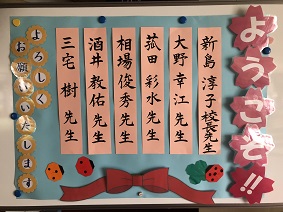 ようこそ!!
新島 淳子 校長先生
大野 幸江 先生
菰田 彩水 先生
相場 俊秀 先生
酒井 教佑 先生
三宅 樹 先生
よろしく
お願いいたします